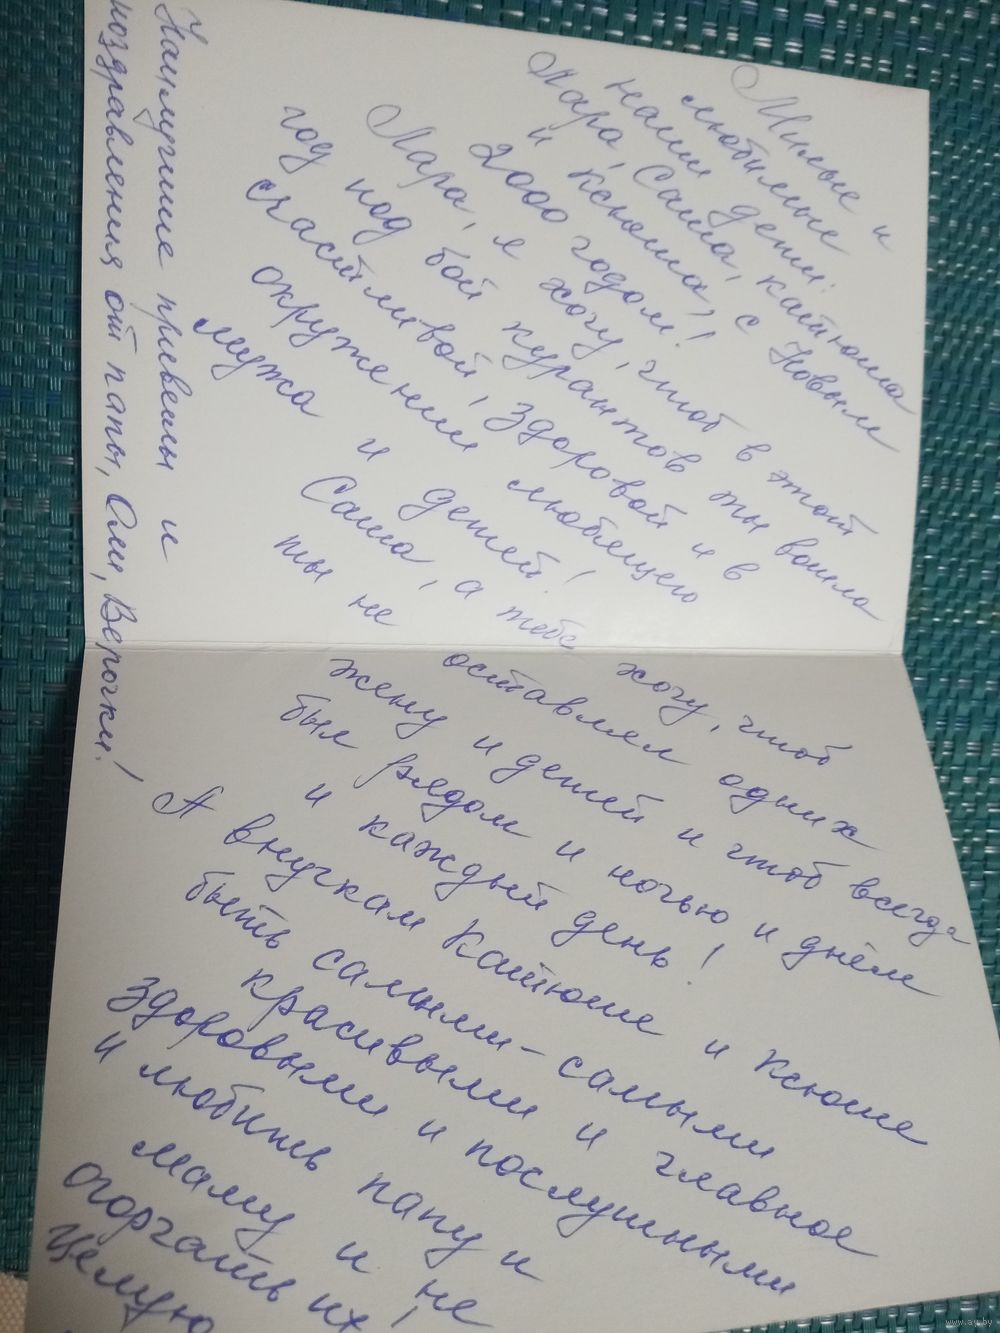 Милые и
любимые
наши дети:
Лара, Саша, Катюша
и Ксюша! с Новым
2000 годом!
Лара, я хочу, чтоб в этот
год под бой курантов ты вошла
счастливой, здоровой и в
окружении любящего
мужа и детей!
Саша, а тебе хочу, чтоб
ты не оставлял одних
жену и детей и чтоб всегда
был рядом и ночью и днём
и каждый день!
А внучкам Катюше и Ксюше
быть самыми-самыми
красивыми и главное
здоровыми и послушными
и любить папу и
маму и не
огорчать их!
Целую
Наилучшие приветы и
поздравления от папы, Оли, Верочки!
www.ay.by